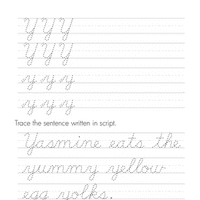 Y Y Y
Y Y Y
y y y
y y y
Trace the sentence written in script.
Yasmine eats the
yummy yellow
egg yolks.